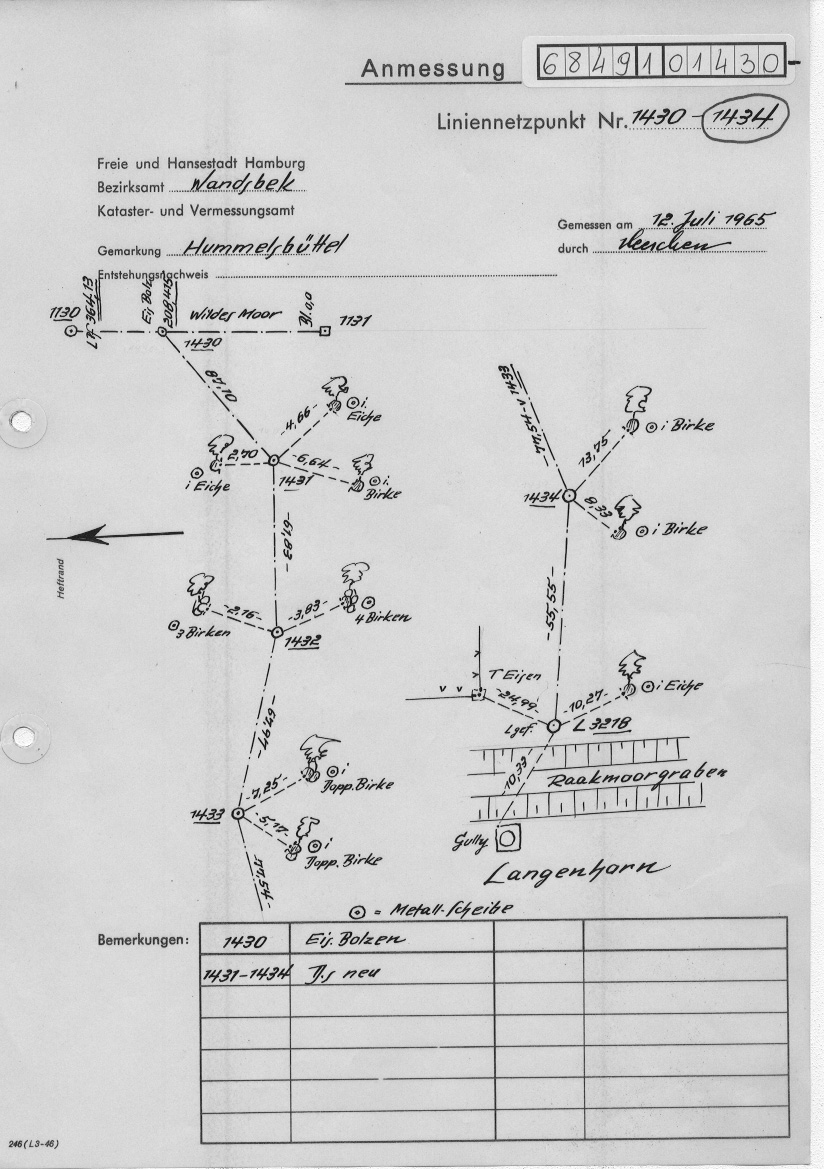 Anmessung 6849101430
Liniennetzpunkt Nr. 1430 - 1434
Freie und Hansestadt Hamburg
Bezirksamt Wandsbek
Kataster- und Vermessungsamt
Gemessen am 12. Juli 1965
durch
Gemarkung Hummelsbüttel
Entstehungsnachweis
1130
364,13
Eis. Bolz
208,45
Wildes Moor
Bl. 0,0
1131
1430
87,10
-4,66-
i. Eiche
2,70
i Eiche
-6,64-
i. Birke
1431
-61,83-
-2,16-
3 Birken
-3,83-
4 Birken
1432
-67,97-
-7,25-
i Dopp. Birke
1433
-5,17-
i Dopp. Birke
-74,54-
-74,54- v 1433
13,75
i Birke
1434
8,33
i Birke
-55,55-
T Eisen
-24,99-
10,27-
i Eiche
Lgef.
L 3218
10,33
Raakmoorgraben
Gully
Langenhorn
= Metall-Scheibe
Heftrand
Bemerkungen:
1430 Eis. Bolzen
1431-1434 D.s neu
246 (L3-46)